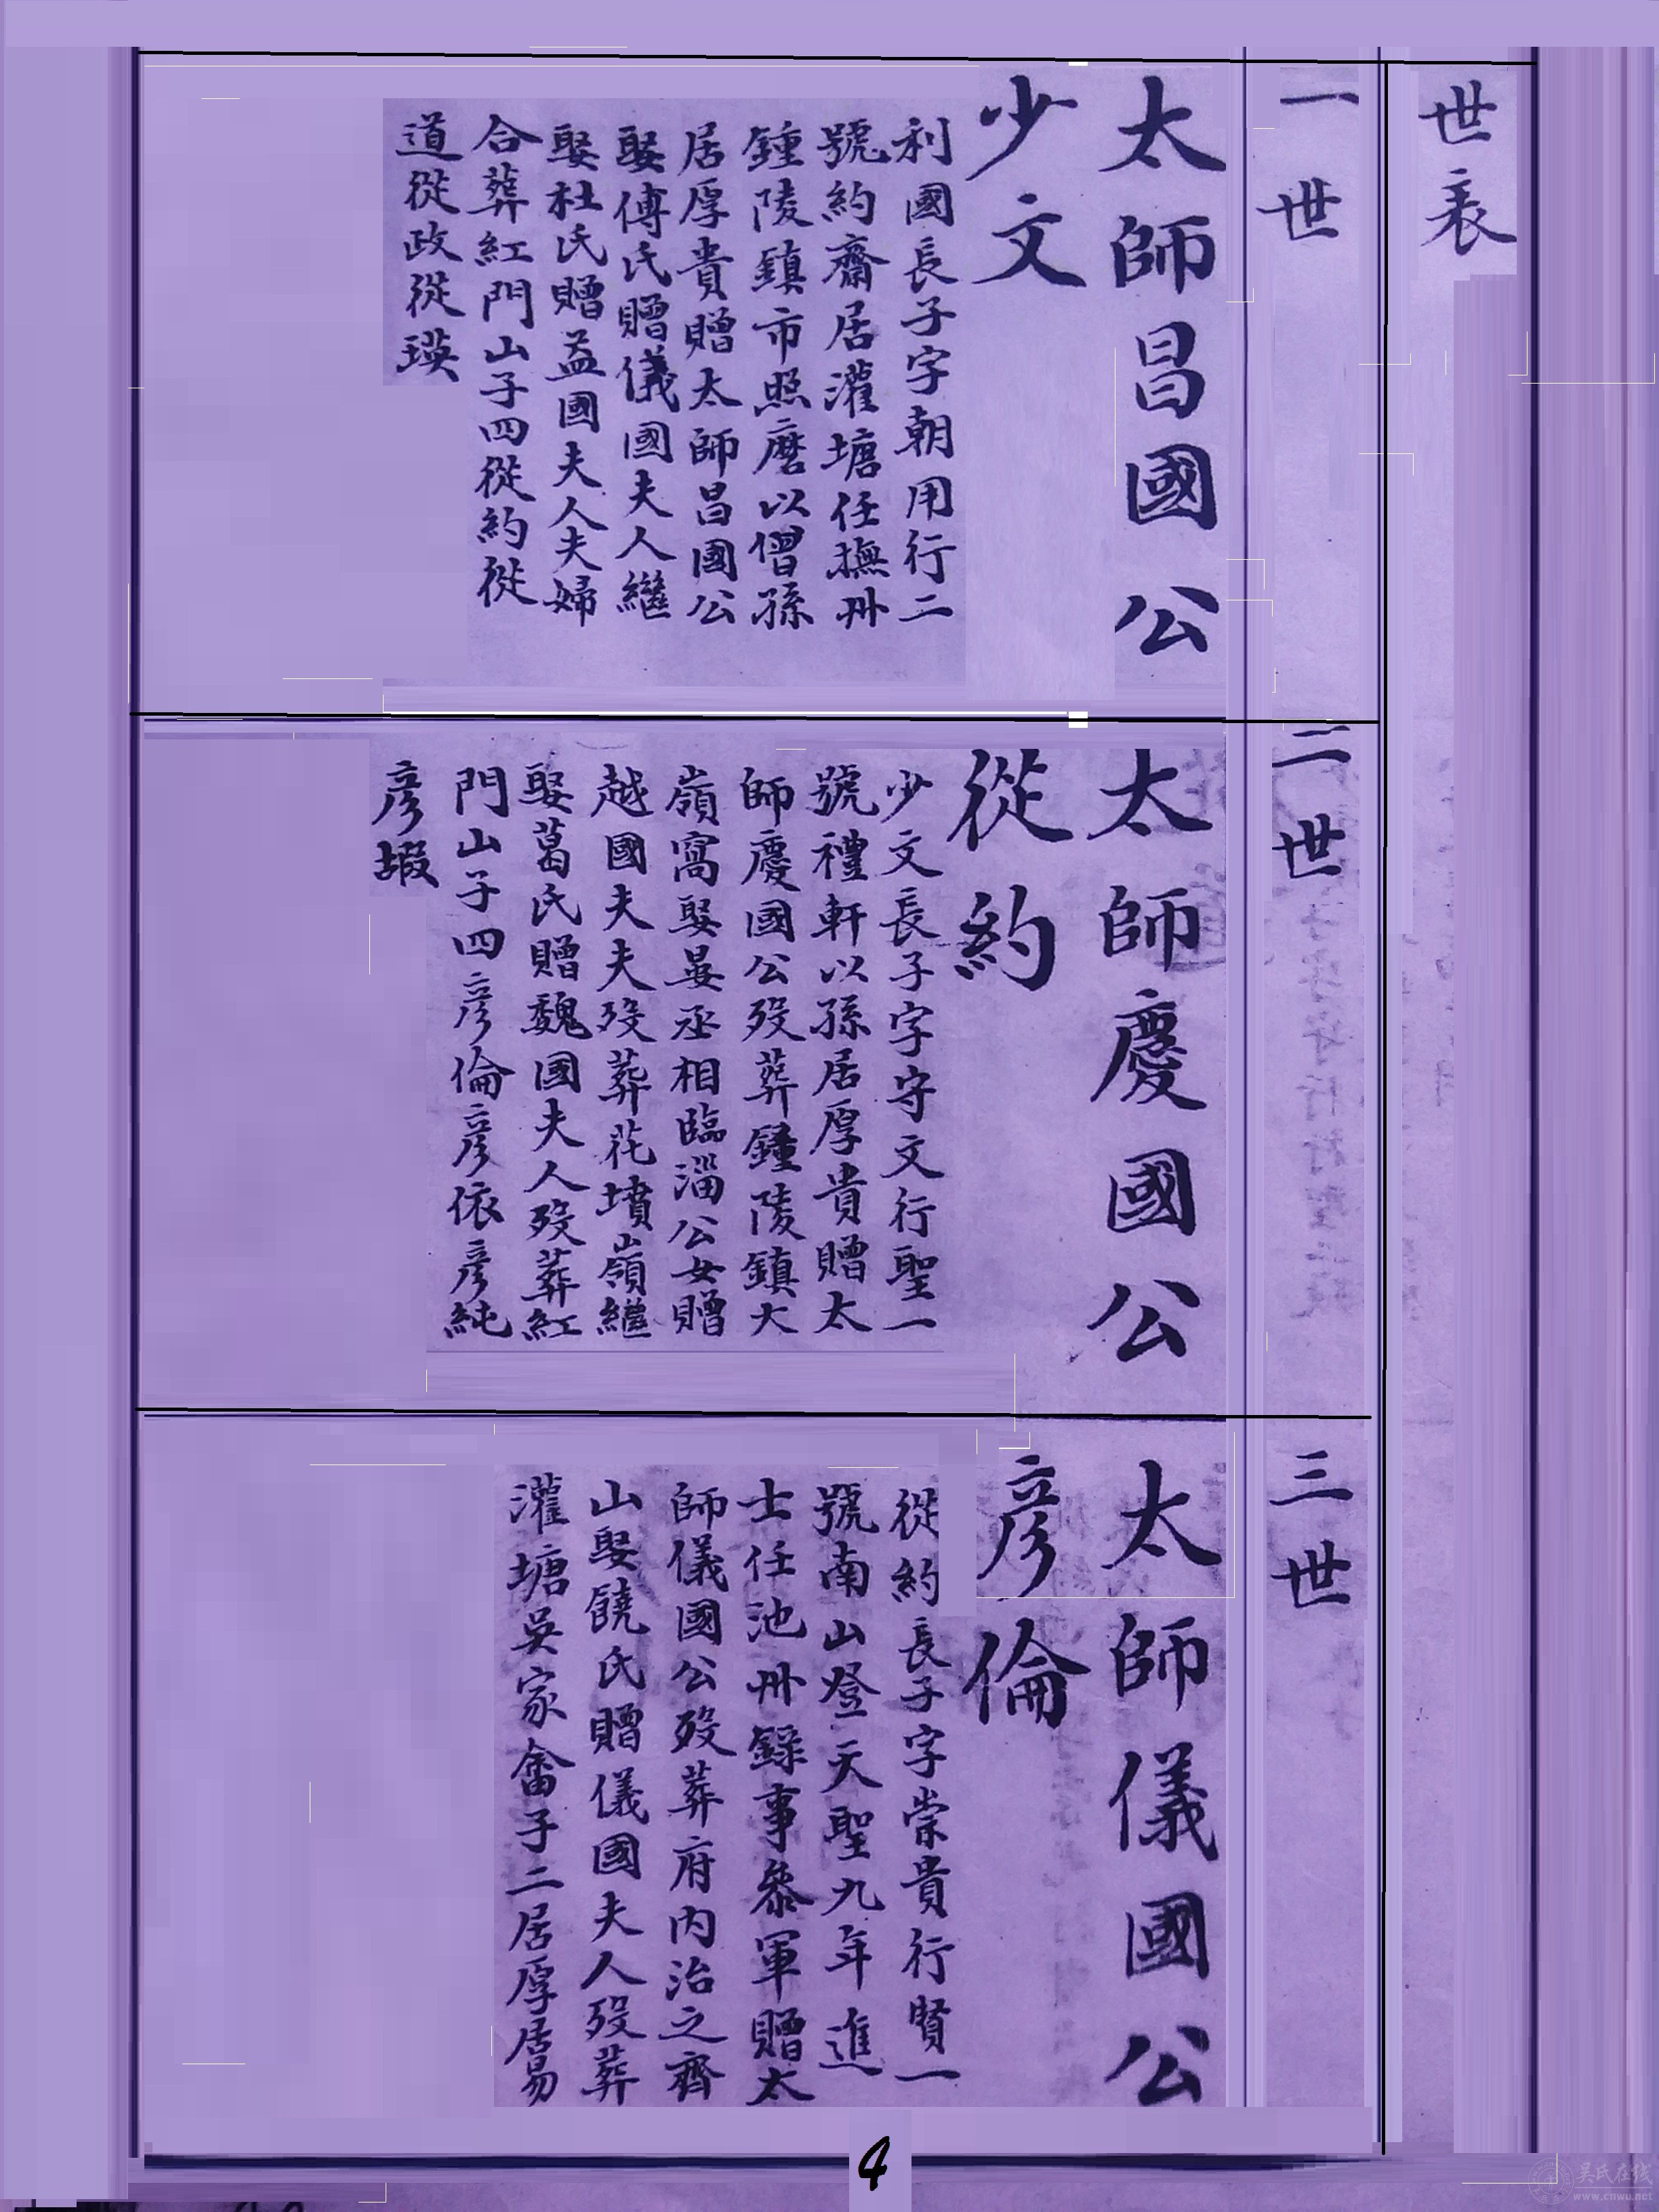 世表
一世
太師昌國公
少文
利國長子字朝用行二
號約齋居灌塘任撫州
鍾陵鎮市照磨以曾孫
居厚貴贈太師昌國公
娶傅氏贈儀國夫人繼
娶杜氏贈益國夫人夫婦
合葬紅門山子四從約從
道從政從瑛
二世
太師慶國公
從約
少文長子字守文行聖一
號禮軒以孫居厚貴贈太
師慶國公歿葬鐘陵鎮大
嶺窩娶晏丞相臨淄公女贈
越國夫夫歿葬花墳嶺繼
娶葛氏贈魏國夫人歿葬紅
門山子四彥倫彥依彥純
彥嘏
三世
太師儀國公
彥倫
從約長子字崇貴行賢一
號南山登天聖九年進
士任池州錄事參軍贈太
師儀國公歿葬府內治之齊
山娶饒氏贈儀國夫人歿葬
灌塘吳家畬子二居厚居易
4
吴氏在线
www.cnwu.net